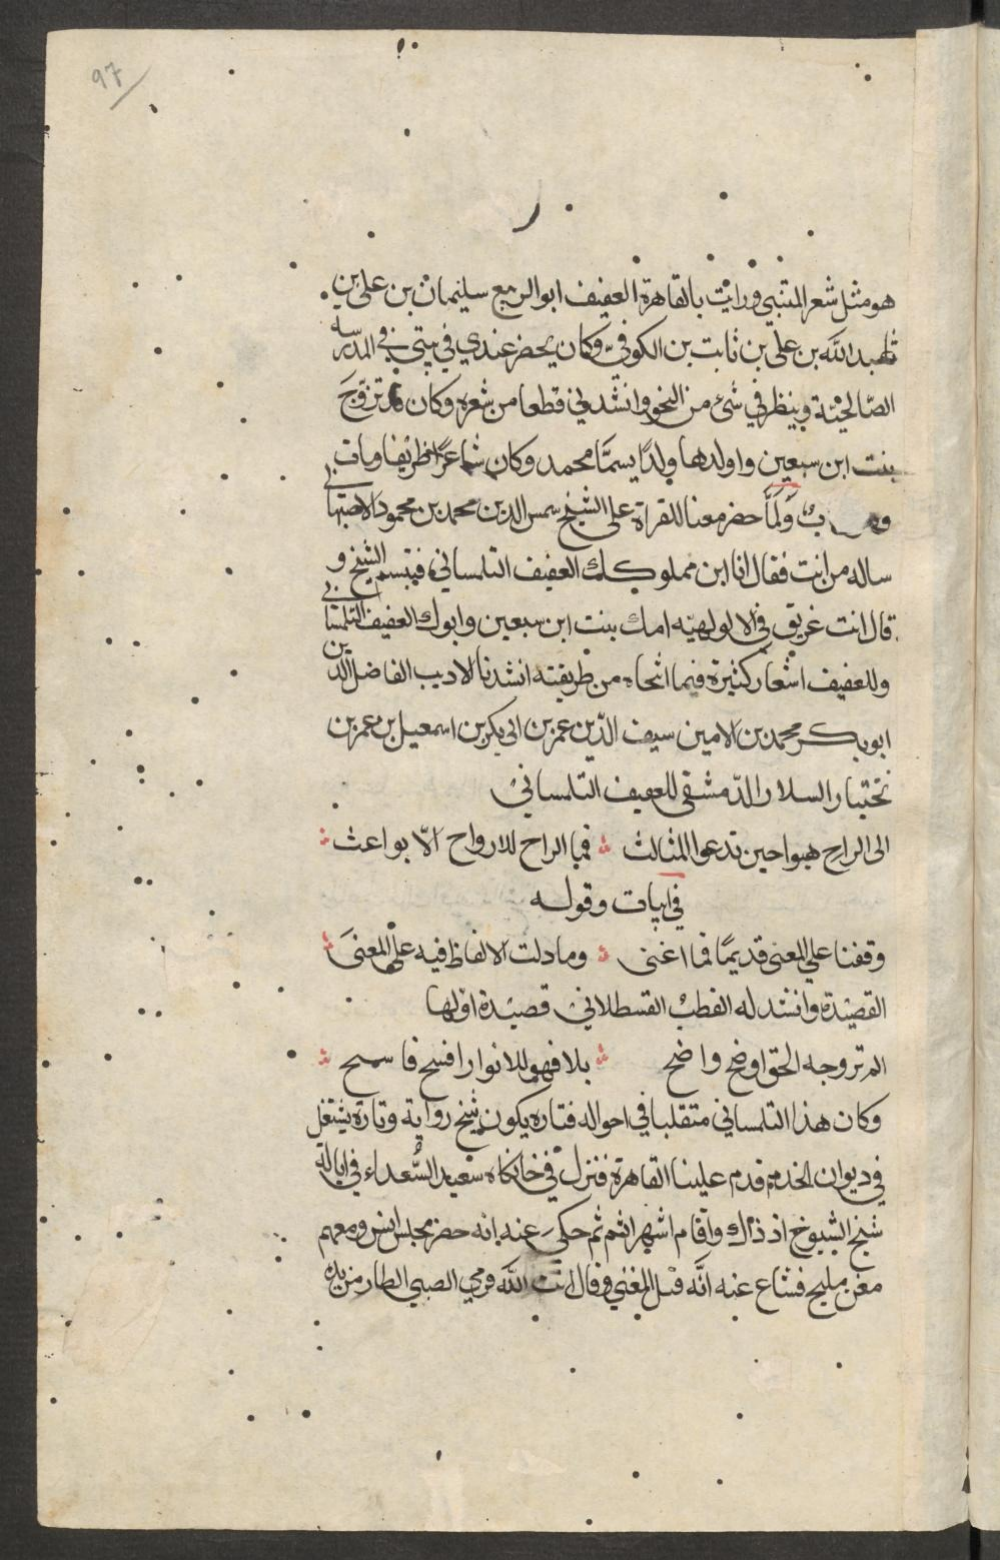 97
هو مثل شعر المتنبي ورايت بالقاهرة العفيف ابوالربيع سليمان بن على بن
عبدالله بن على بن ثابت بن الكوفي وكان يحضر عندي في بيتي في المدرسه
الصالحية وينظر في شئ من النحو وانشدني قطعا من شعره وكان قد تزوج
بنت ابن سبعين واولدها ولدًا يسمّا محمد وكان شاعرًا ظريفا ومات
ولمّا حضر معنا للقراة على الشيخ شمس الدين محمد بن محمود الاصبهاني
ساله من انت فقال انا ابن مملوكك العفيف التلمساني فتبسم الشيخ و
قال انت غريق في الالوهيه امك بنت ابن سبعين وابوك العفيف التلمساني
وللعفيف اشعار كثيرة فيما انتحاه من طريقته انشدنا الاديب الفاضل الدين
ابوبكر محمد بن الامين سيف الدّين عمر بن ابي بكر بن اسمعيل بن عمر بن
بختيار السلار الدّمشقى للعفيف التلمسانيّ
الى الراح هبوا حين تدعوا المثالث فما الراح للارواح الّا بواعث
في ابيات وقوله
وقفنا علي المغنى قديمًا فما اغنى وما دلت الالفاظ فيه علي المعنَى
القصيدة وانشد له القطب القسطلاني قصيدة اولها
الم تر وجه الحق اوضح واضح بلا فهو للانوار افسح فاسمح
وكان هذا التلمساني متقلبا في احواله فتاره يكون شيخ رواية وتارة يشتغل
في ديوان الخدم قدم علينا القاهرة فنزل في خانكاه سعيد السُّعداء في ايالة
شيخ الشيوخ اذ ذاك واقام اشهرا ثم ثم حكى عنه انه حضر مجلس انس ومعهم
مغن مليح فشاع عنه انّه قبل المغني وقال انت الله فرمي الصبي الطار من يده